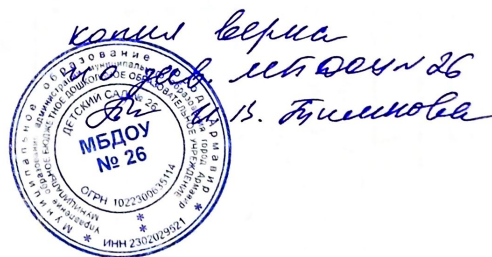 копия верна
и о зав. МБДОУ № 26
В. Тимнова
Муниципальное образование город Армавир
Управление образования администрации муниципального образования город Армавир
МУНИЦИПАЛЬНОЕ БЮДЖЕТНОЕ ДОШКОЛЬНОЕ ОБРАЗОВАТЕЛЬНОЕ УЧРЕЖДЕНИЕ
ДЕТСКИЙ САД № 26
МБДОУ
№ 26
ОГРН 1022300635114
ИНН 2302029521